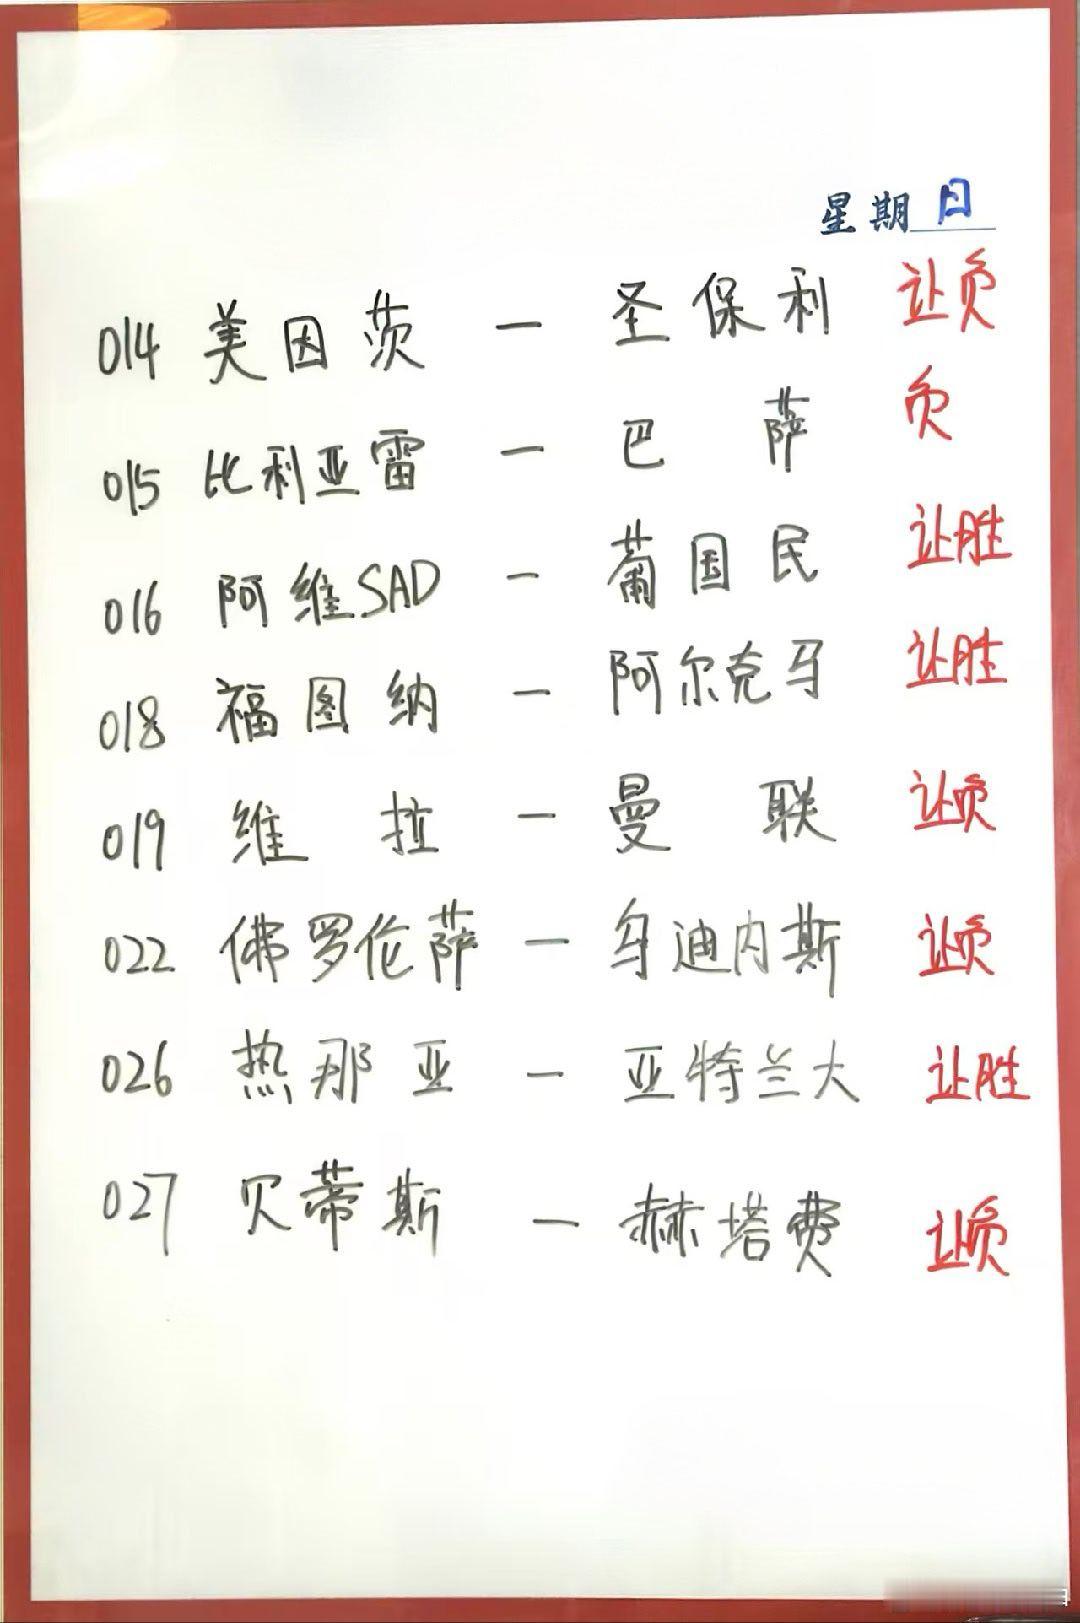 星期日
014 美因茨 — 圣保利 让负
015 比利亚雷 — 巴萨 负
016 阿维SAD — 葡国民 让胜
018 福图纳 — 阿尔克马 让胜
019 维拉 — 曼联 让负
022 佛罗伦萨 — 乌迪内斯 让负
026 热那亚 — 亚特兰大 让胜
027 贝蒂斯 — 赫塔费 让负